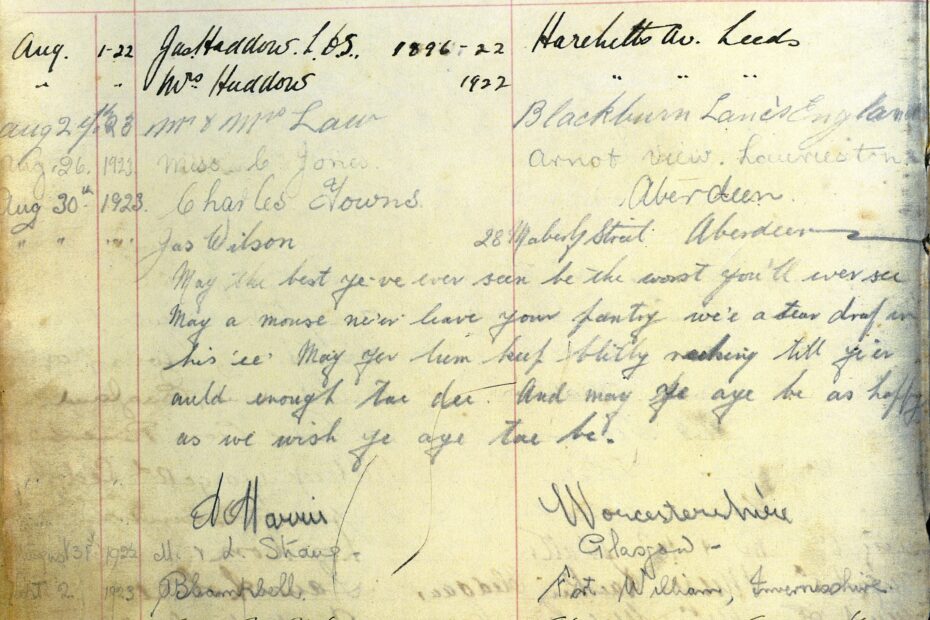 Aug. 1-22 Jas. Haddow. L.D.S. 1896-22 Harehills Av. Leeds
" " Mrs Haddow 1922 " " "
Aug 24th 23 Mr & Mrs Law Blackburn Lancs England
Aug. 26. 1923 Miss C Jones. Arnot View. Laurieston.
Aug 30th 1923. Charles Towns. Aberdeen.
" " " Jas Wilson 28 Maberly Street Aberdeen
May the best ye've ever seen be the worst you'll ever see
May a mouse ne'er leave your pantry wi'e a tear drap in
his 'ee' May yer lum keep blithly reeking till ye'er
auld enough tae dee. And may ye aye be as happy
as we wish ye aye tae be!
Harris Worcestershire
31st M. & L. Strang - Glasgow -
Sept 2. 1923 B Campbell. Fort William, Invernesshire.